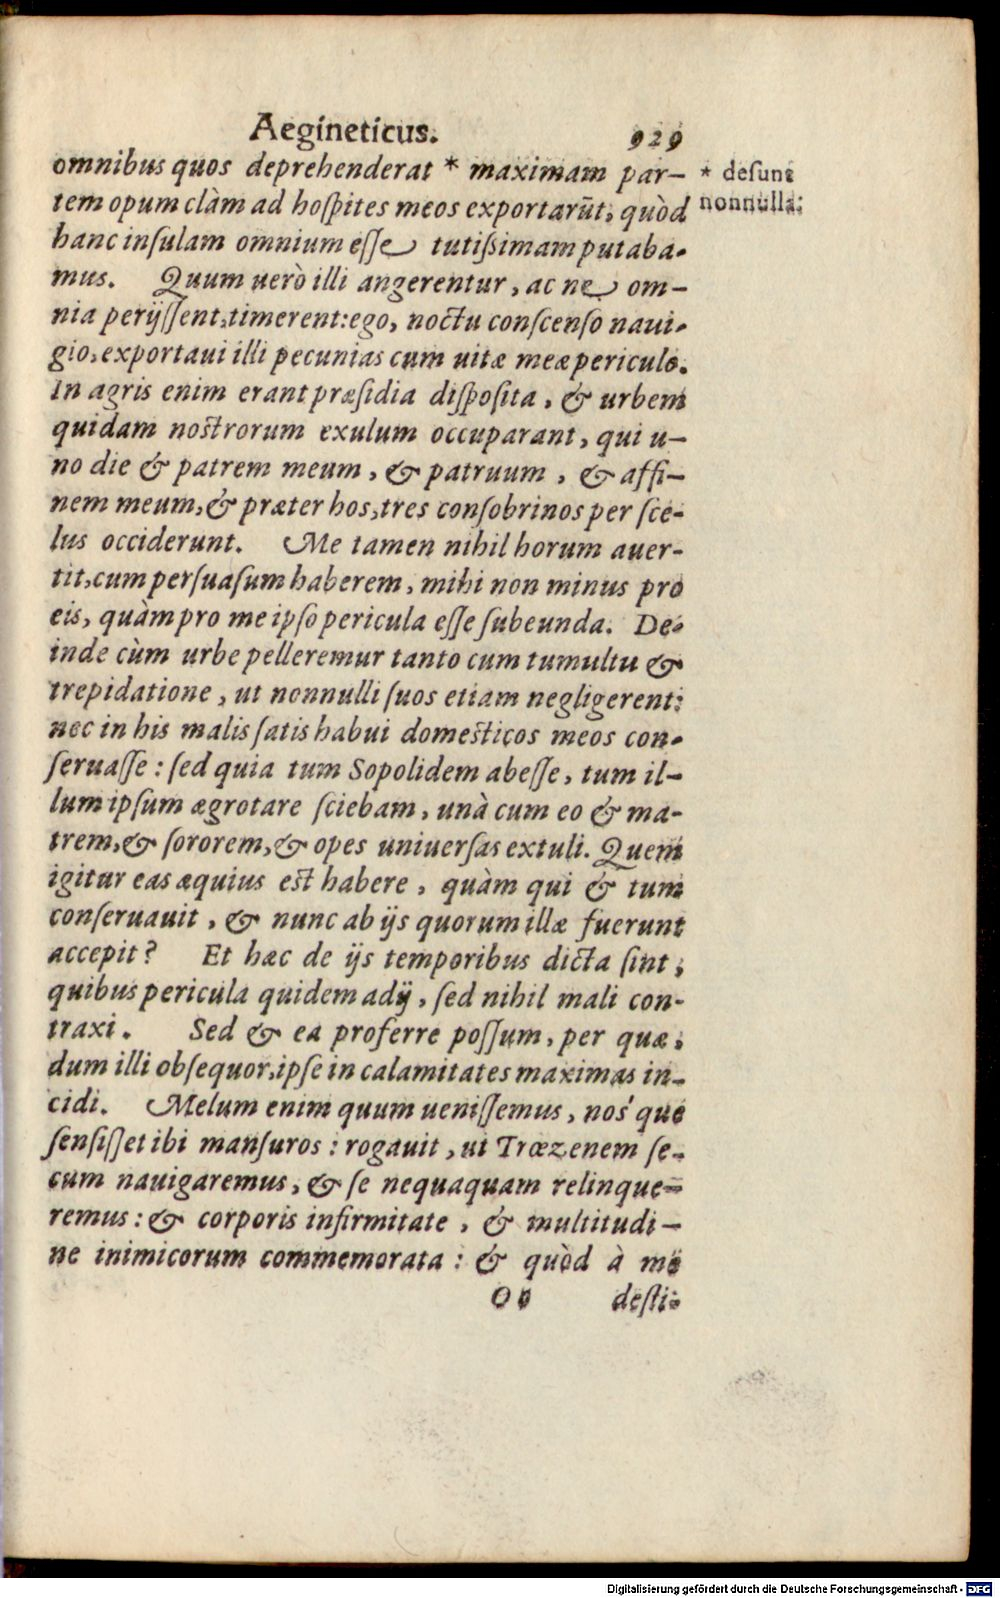 Aegineticus. 929
omnibus quos deprehenderat * maximam par-
* desunt
nonnulla:
tem opum clàm ad hoſpites meos exportarūt, quòd
hanc inſulam omnium eſſe tutißimam putaba-
mus. Quum uerò illi angerentur, ac ne om-
nia perijſſent, timerent: ego, noctu conſcenſo naui-
gio, exportaui illi pecunias cum uitæ meæ periculo.
In agris enim erant præſidia diſpoſita, & urbem
quidam noſtrorum exulum occuparant, qui u-
no die & patrem meum, & patruum, & affi-
nem meum, & præter hos, tres conſobrinos per ſce-
lus occiderunt. Me tamen nihil horum auer-
tit, cum perſuaſum haberem, mihi non minus pro
eis, quàm pro me ipſo pericula eſſe ſubeunda. De-
inde cùm urbe pelleremur tanto cum tumultu &
trepidatione, ut nonnulli ſuos etiam negligerent:
nec in his malis ſatis habui domeſticos meos con-
ſeruaſſe: ſed quia tum Sopolidem abeſſe, tum il-
lum ipſum ægrotare ſciebam, unà cum eo & ma-
trem, & ſororem, & opes uniuerſas extuli. Quem
igitur eas æquius eſt habere, quàm qui & tum
conſeruauit, & nunc ab ijs quorum illæ fuerunt
accepit? Et hæc de ijs temporibus dicta ſint,
quibus pericula quidem adij, ſed nihil mali con-
traxi. Sed & ea proferre poſſum, per quæ,
dum illi obſequor, ipſe in calamitates maximas in-
cidi. Melum enim quum ueniſſemus, nos'que
ſenſiſſet ibi manſuros: rogauit, ut Trœzenem ſe-
cum nauigaremus, & ſe nequaquam relinque-
remus: & corporis infirmitate, & multitudi-
ne inimicorum commemorata: & quòd à me
Oo deſti-
Digitalisierung gefördert durch die Deutsche Forschungsgemeinschaft - DFG